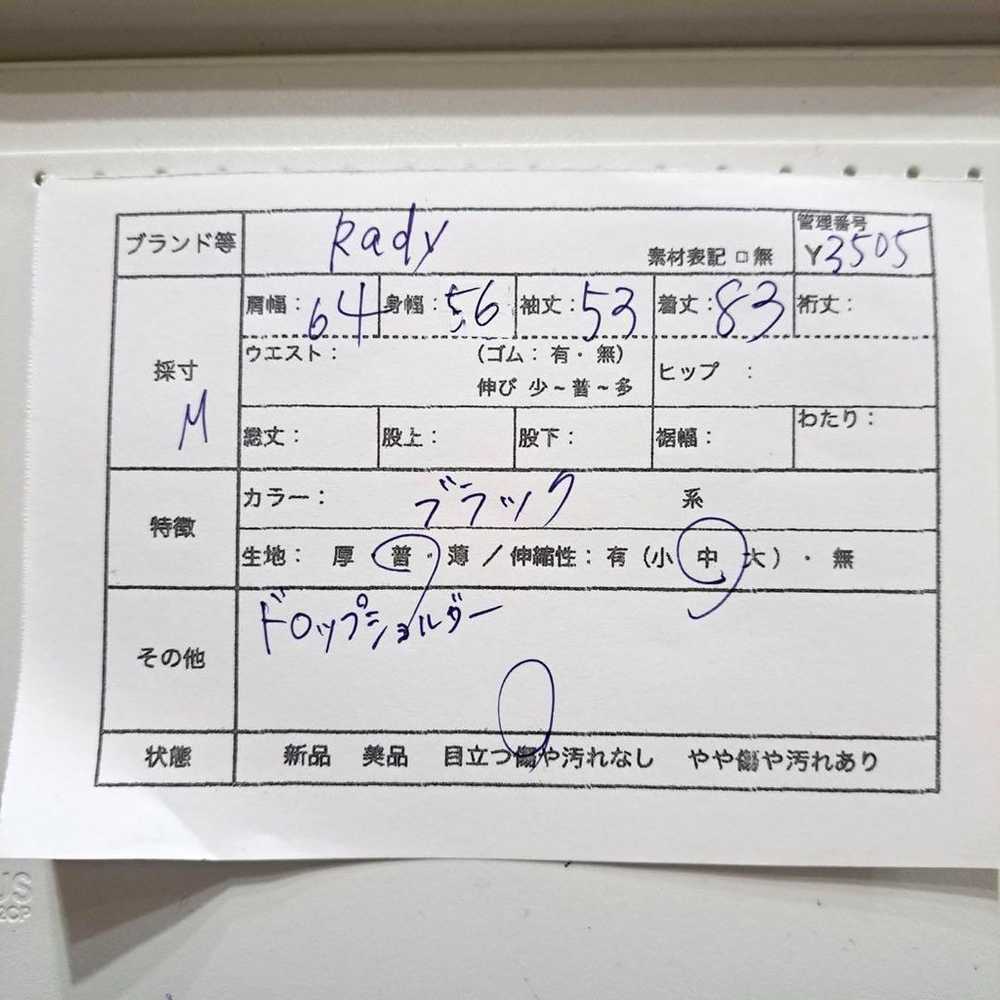 ブランド等 Rady 素材表記 □ 無 管理番号 Y3505
採寸 M
肩幅：64 身幅：56 袖丈：53 着丈：83 裄丈：
ウエスト： （ゴム：有・無） ヒップ ：
伸び 少～普～多
総丈： 股上： 股下： 裾幅： わたり：
特徴
カラー： ブラック 系
生地： 厚 普・薄 ／ 伸縮性：有（小 中 大）・ 無
その他 ドロップショルダー
状態 新品 美品 目立つ傷や汚れなし やや傷や汚れあり
US
2CP